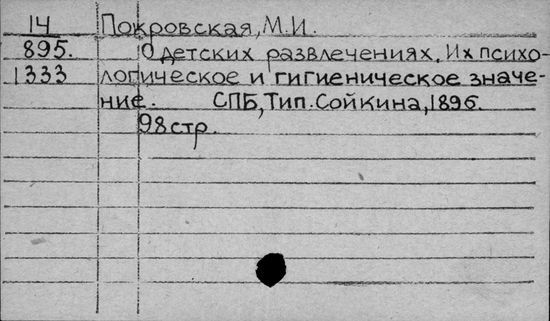 14 Покровская, М.И.
895. О детских развлечениях. Их психо-
1333 логическое и гигиеническое значе-
ние. СПБ, Тип. Сойкина, 1896.
98 стр.